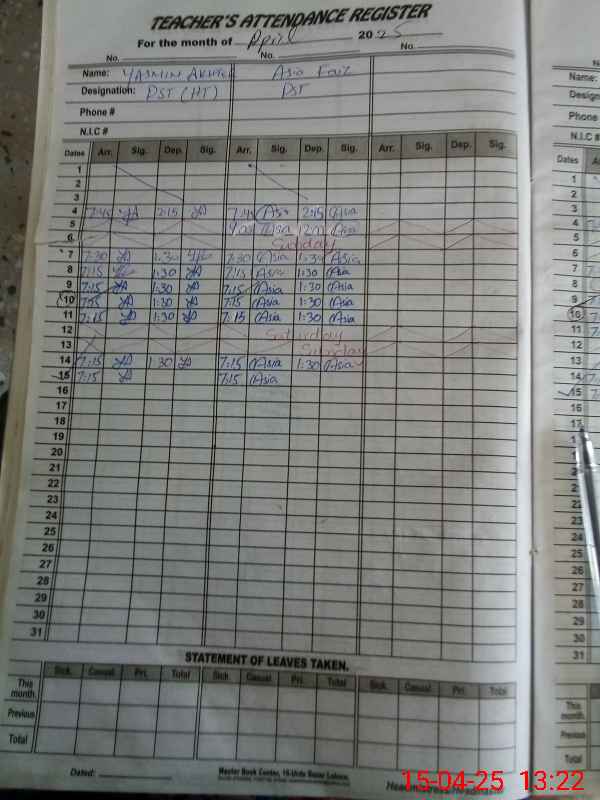 TEACHER'S ATTENDANCE REGISTER
For the month of April 2025
No. No. No.
Name: YASMIN AKHTER Asia Faiz
Designation: PST (HT) PST
Phone #
N.I.C #
Dates Arr. Sig. Dep. Sig. Arr. Sig. Dep. Sig. Arr. Sig. Dep. Sig.
1
2
3
4 7:45 YA 2:15 YA 7:45 Asia 2:45 Asia
5 Asia Asia
6 Sunday
7 7:30 YA 1:30 7:30 Asia 1:30 Asia
8 7:15 1:30 YA 7:15 Asia 1:30 Asia
9 7:15 YA 1:30 YA 7:15 Asia 1:30 Asia
10 7:15 YA 1:30 YA 7:15 Asia 1:30 Asia
11 7:15 YA 1:30 YA 7:15 Asia 1:30 Asia
12 Saturday
13 Sunday
14 7:15 YA 1:30 YA 7:15 Asia 1:30 Asia
15 7:15 YA 7:15 Asia
16
17
18
19
20
21
22
23
24
25
26
27
28
29
30
31
STATEMENT OF LEAVES TAKEN.
Sick. Casual. Pri. Total Sick. Casual. Pri. Total Sick. Casual. Pri. Total
This month.
Previous
Total
Dated: Master Book Center, 16-Urdu Bazar Lahore.
Headmistress/Headmaster
Name:
Phone
N.I.C #
Dates Arr.
1
2
3
4
5
6
7
8
9
10
11
12
13
14
15
16
17
20
21
22
23
24
25
26
27
28
29
30
31
This month.
Previous
Total
15-04-25 13:22